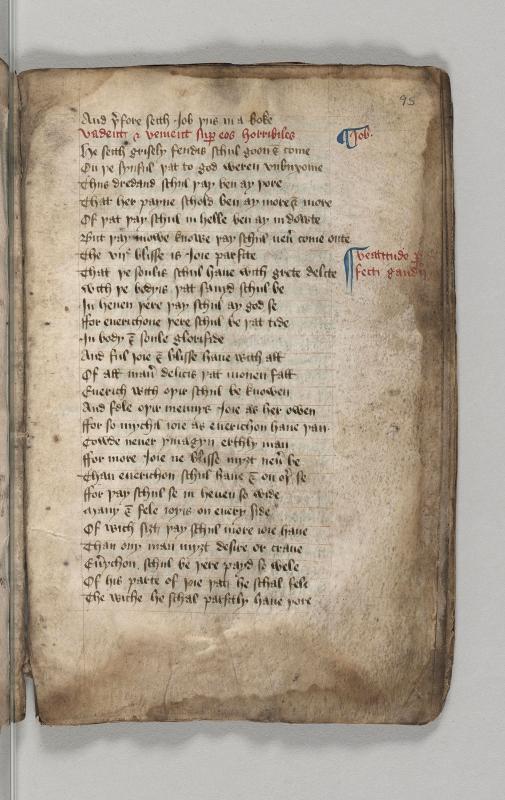 95
And yͤfore seith Job yus in a boke
vadent & venient sup eos horribiles
Job.
He seith grisely fendis schul goon & come
On ye synful yat to god weren vnbuxome
Thus dredand schul yay ben ay yore
That her payne schold ben ay more & more
Of yat yay schul in helle ben ay in dowte
But yay mowe knowe yay schul neuͬ come oute
The vijͤ blisse is Joie parfite
beatitudo ꝑ
fecti gaudij
That ye soulis schul haue with grete delite
With ye bodyis yat sauyd schul be
In heuen yere yay schul ay god se
ffor euerichone yere schul be yat tide
In body & soule glorifide
And ful joie & blisse haue with all
Of all man delicis yat mowen fall
Euerich with oyir schul be knowen
And fele oyir menys Joie as her owen
ffor so mychil joie as euerichon haue yan
Cowde neuer ymagyn erthly man
ffor more Joie ne blisse myȝt neu be
Than euerichon schul haue & on oyͬ se
ffor yay schul se in heuen so wide
Many & fele joyis on euery side
Of wich siȝt yay schul more joie haue
Than ony man myȝt desire or craue
Eu'ychon schul be yere payd so wele
Of his parte of joie yat he schal fele
The wiche he schal parfitly haue yore